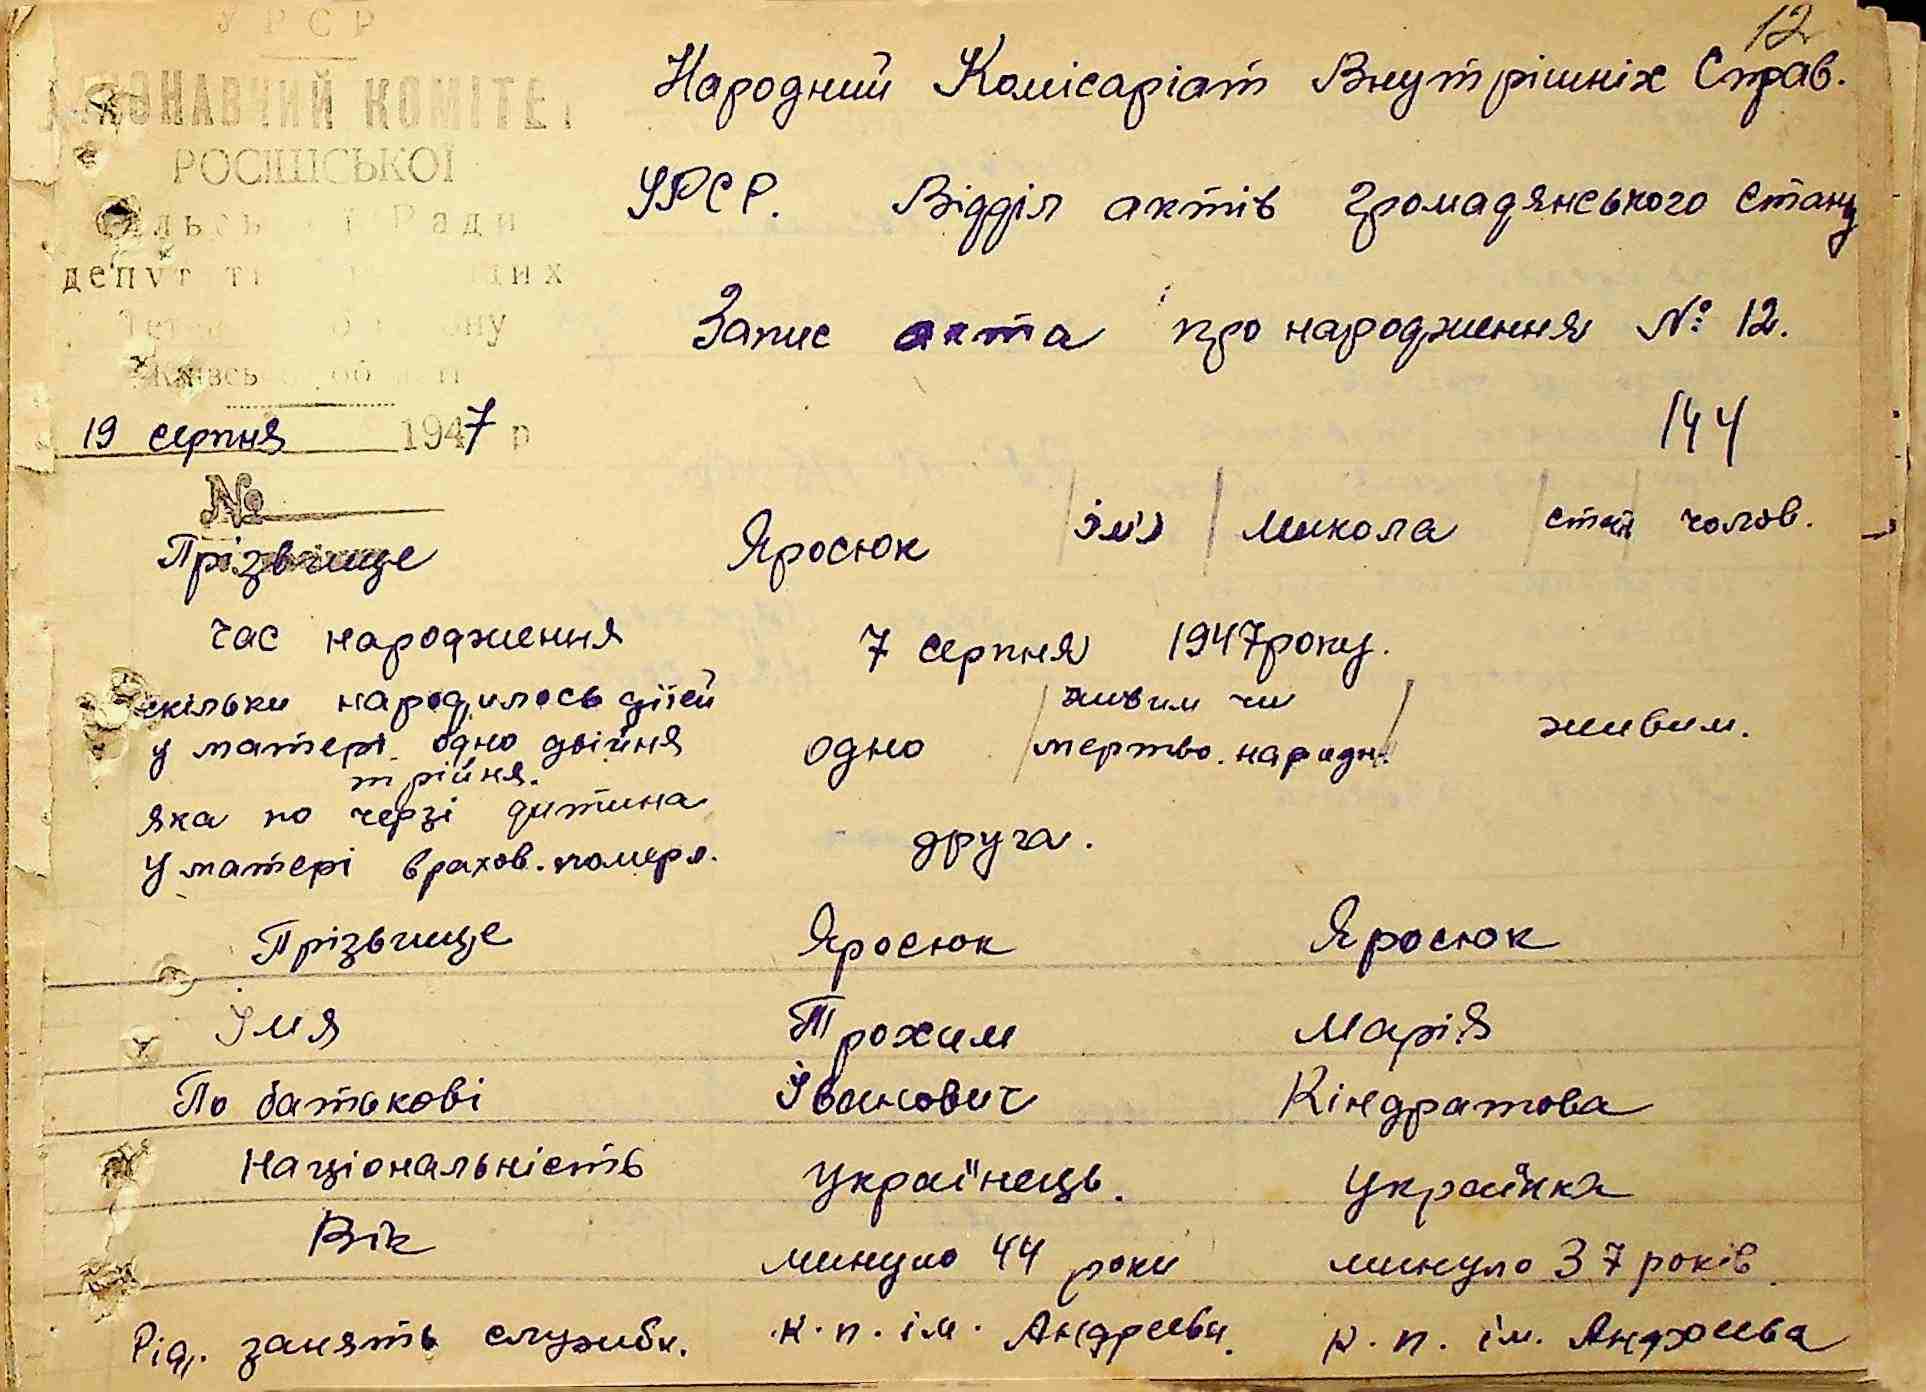 12
УРСР
КОНАВЧИЙ КОМІТЕТ
Народний Комісаріат Внутрішніх Справ.
УРСР. Відділ актів громадянського стану
Ради
Запис акта про народження № 12.
19 серпня 1947 р
144
№
Прізвище Яросюк ім'я Микола стать чолов.
час народження 7 серпня 1947 року.
скільки народилось дітей
у матері одно двійня
трійня.
одно
живим чи
мертво. народж.
живим.
яка по черзі дитина
у матері врахов. помера.
друга.
Прізвище Яросюк Яросюк
Імя Трохим Марія
По батькові Іванович Кіндратова
Національність Українець. Українка
Вік минуло 44 роки минуло 37 років
Рід. занять служби. к.п. ім. Андреєва. к.п. ім. Андреєва